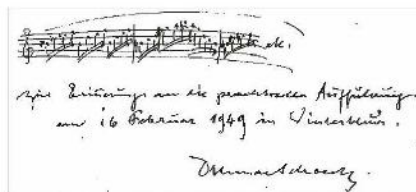 etc.
Zur Erinnerung an die prachtvollen Aufführungen
am 16 Februar 1949 in Winterthur.